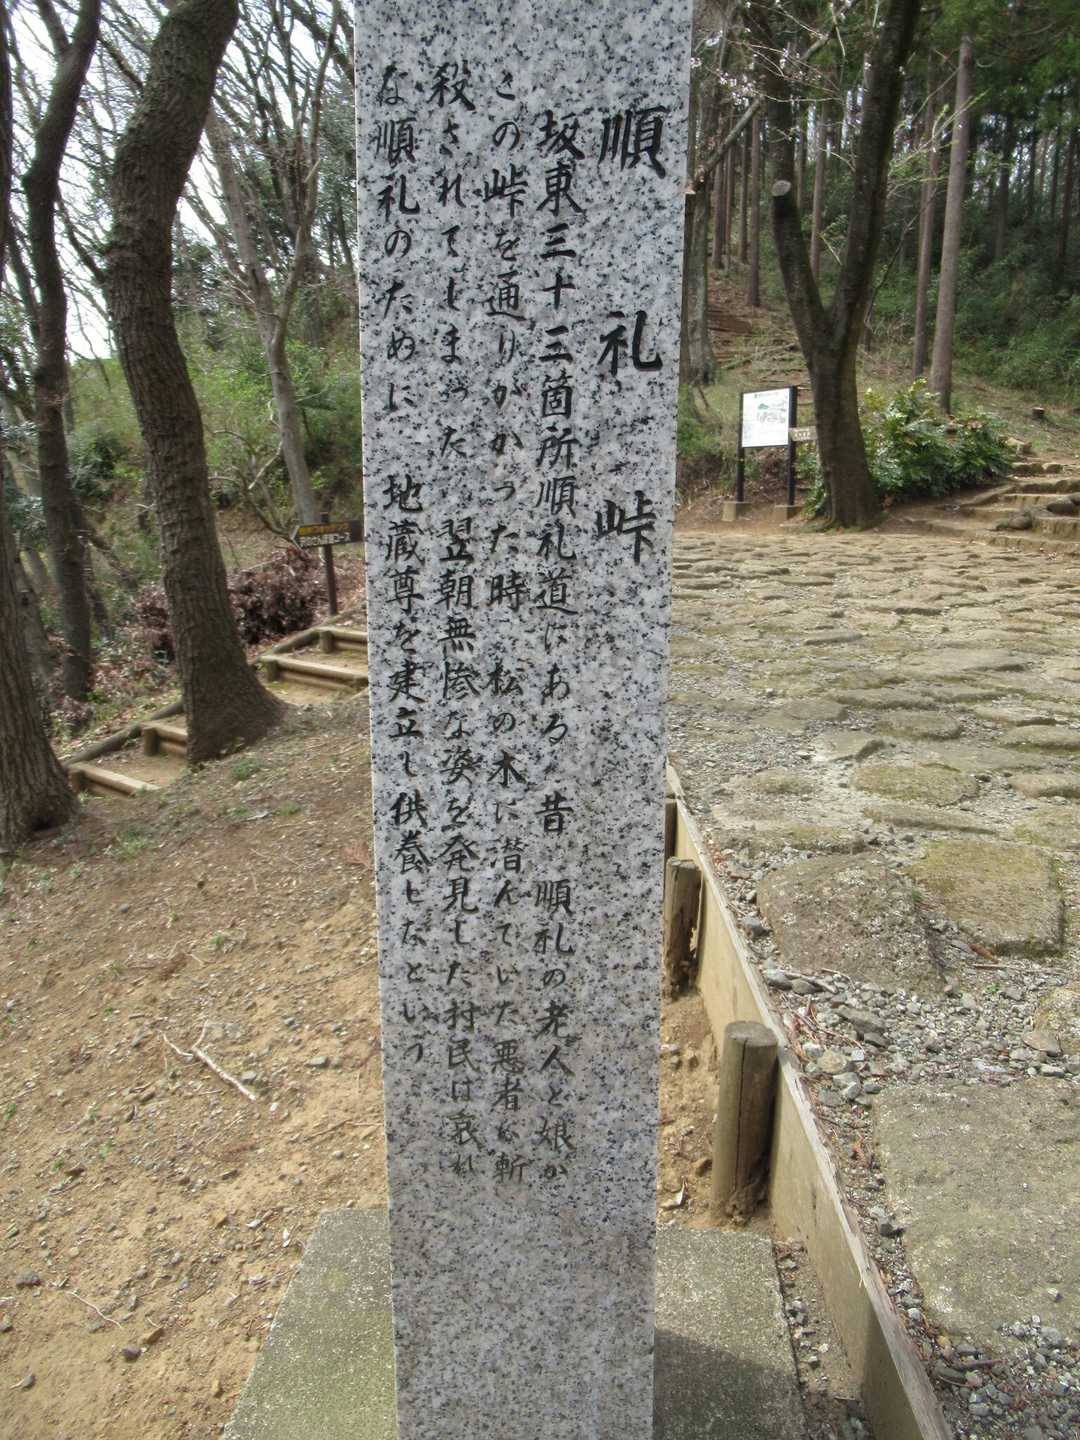 順礼峠
坂東三十三箇所順礼道にある 昔 順礼の老人と娘が
この峠を通りがかった時 松の木に潜んでいた悪者に斬
殺されてしまった 翌朝無惨な姿を発見した村民は哀れ
な順礼のために 地蔵尊を建立し供養したという